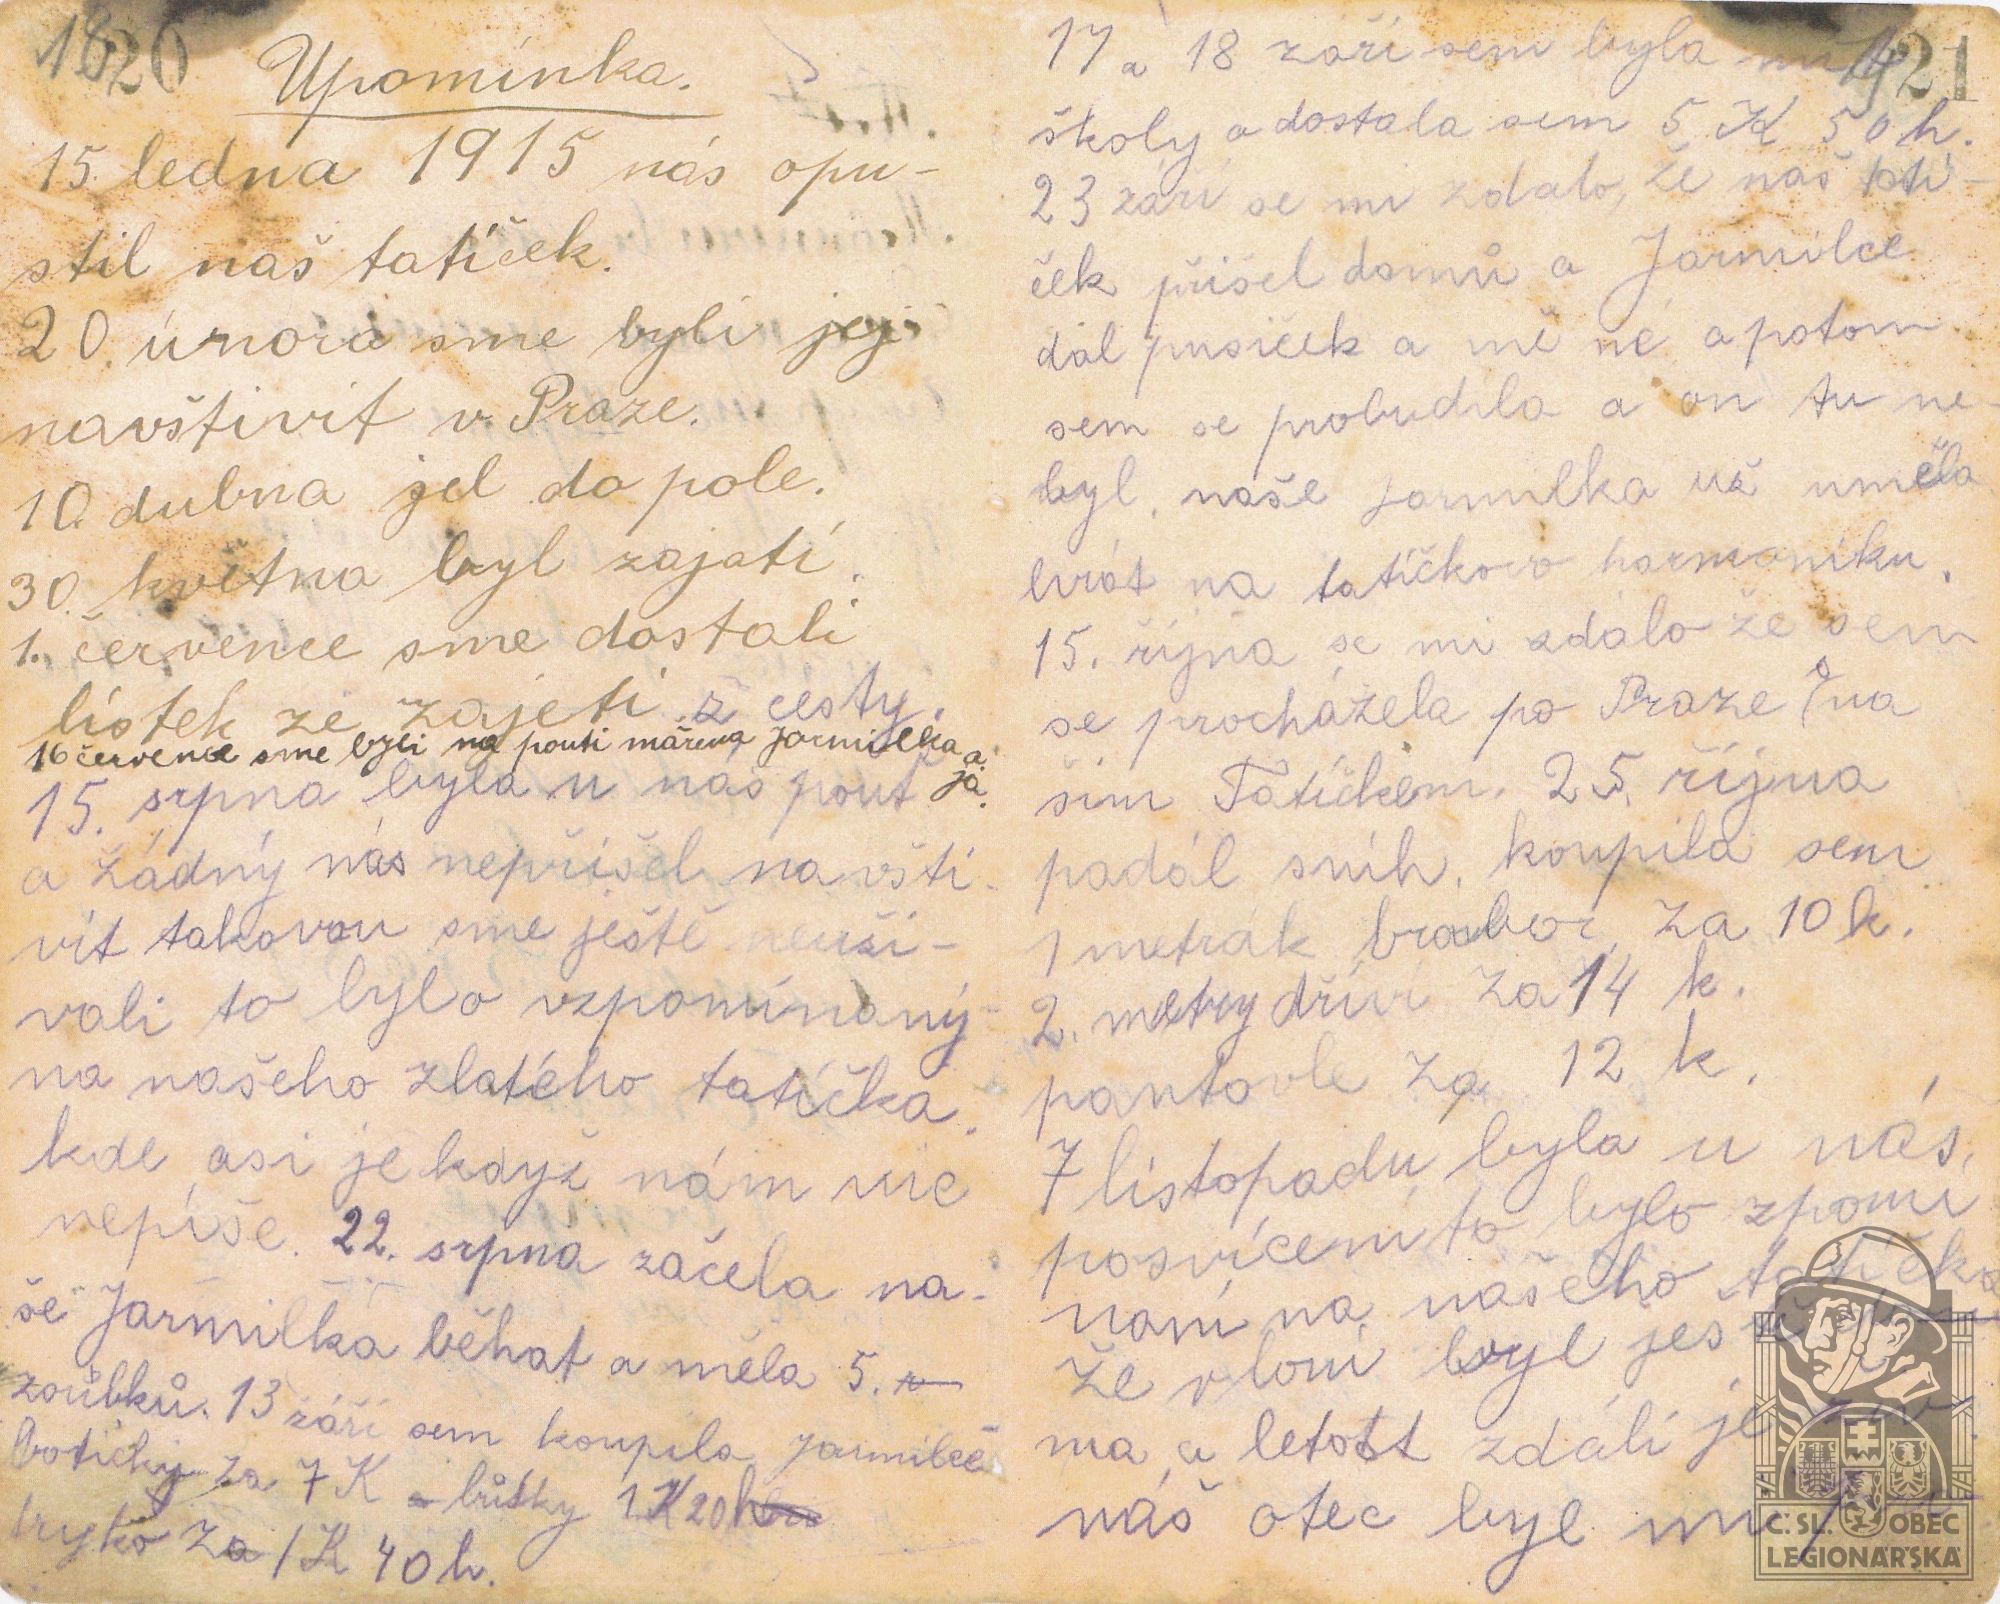 1820
Upomínka.
15. ledna 1915 nás opu-
stil náš tatíček.
20. února sme byli jej
navštivit v Praze.
10. dubna jel do pole.
30. května byl zajatí.
1. července sme dostali
lístek ze zajetí z cesty.
16 července sme byli na pouti mářena Jarmilka a
ja.
15. srpna byla u nás pouť
a žádný nás nepřišel navští-
vit takovou sme ještě neuži-
vali to bylo vzpomínaný
na našeho zlatého tatíčka.
kde asi je když nám nic
nepíše. 22. srpna začela na-
še Jarmilka běhat a měla 5.
zoubků. 13 září sem koupila Jarmilce
botičky za 7 K bůtky 1 K 20 h
tryko za 1 K 40 h.
17 a 18 září sem byla
školy a dostala sem 5 K 50 h.
23 září se mi zdalo, že náš tatí-
ček přišel domů a Jarmilce
dal pusiček a mě né a potom
sem se probudila a on tu ne-
byl. naše Jarmilka už uměla
hrát na tatíčkovo harmoniku.
15. října se mi zdálo že sem
se procházela po Praze s na
šim Tatíčkem. 25. října
padál sníh. koupila sem
1 metrák brambor za 10 k.
2. metry dříví za 14 k.
pantovle za 12 k.
7 listopadu byla u nás,
posvícení to bylo zpomí
nání na našeho tatíčka
že vloni byl ješ
ma a letott zdáli je
náš otec byl
21
Č. SL. OBEC
LEGIONÁŘSKÁ